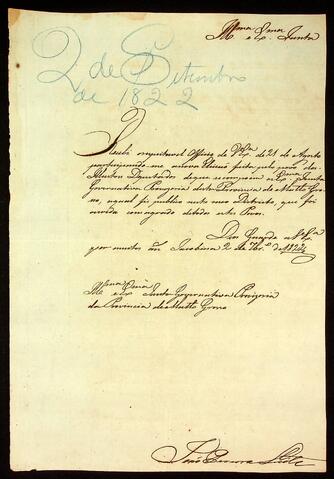 Illma Exma
M. e Ex. Junta
2 de Setembro
de 1822
Recebi respeitavel Officio de V. Exa. de 21 de Agosto
participando me a nova Eleição feita pelo povo dos
Illustres Deputados de que se compoem a Exma. Junta
Governativa Provizoria desta Provincia de Matto Gros
so, a qual fiz publica neste meo Districto, que foi
ouvida com agrado de todos este Povo.
Deos Guarde a V. Exa.
por muitos an. Jacobina 2 de 7br.o de 1822
Illma Exma
M. e Ex. Junta Governativa Provizoria
da Provincia de Matto Grosso
João Pereira Leite